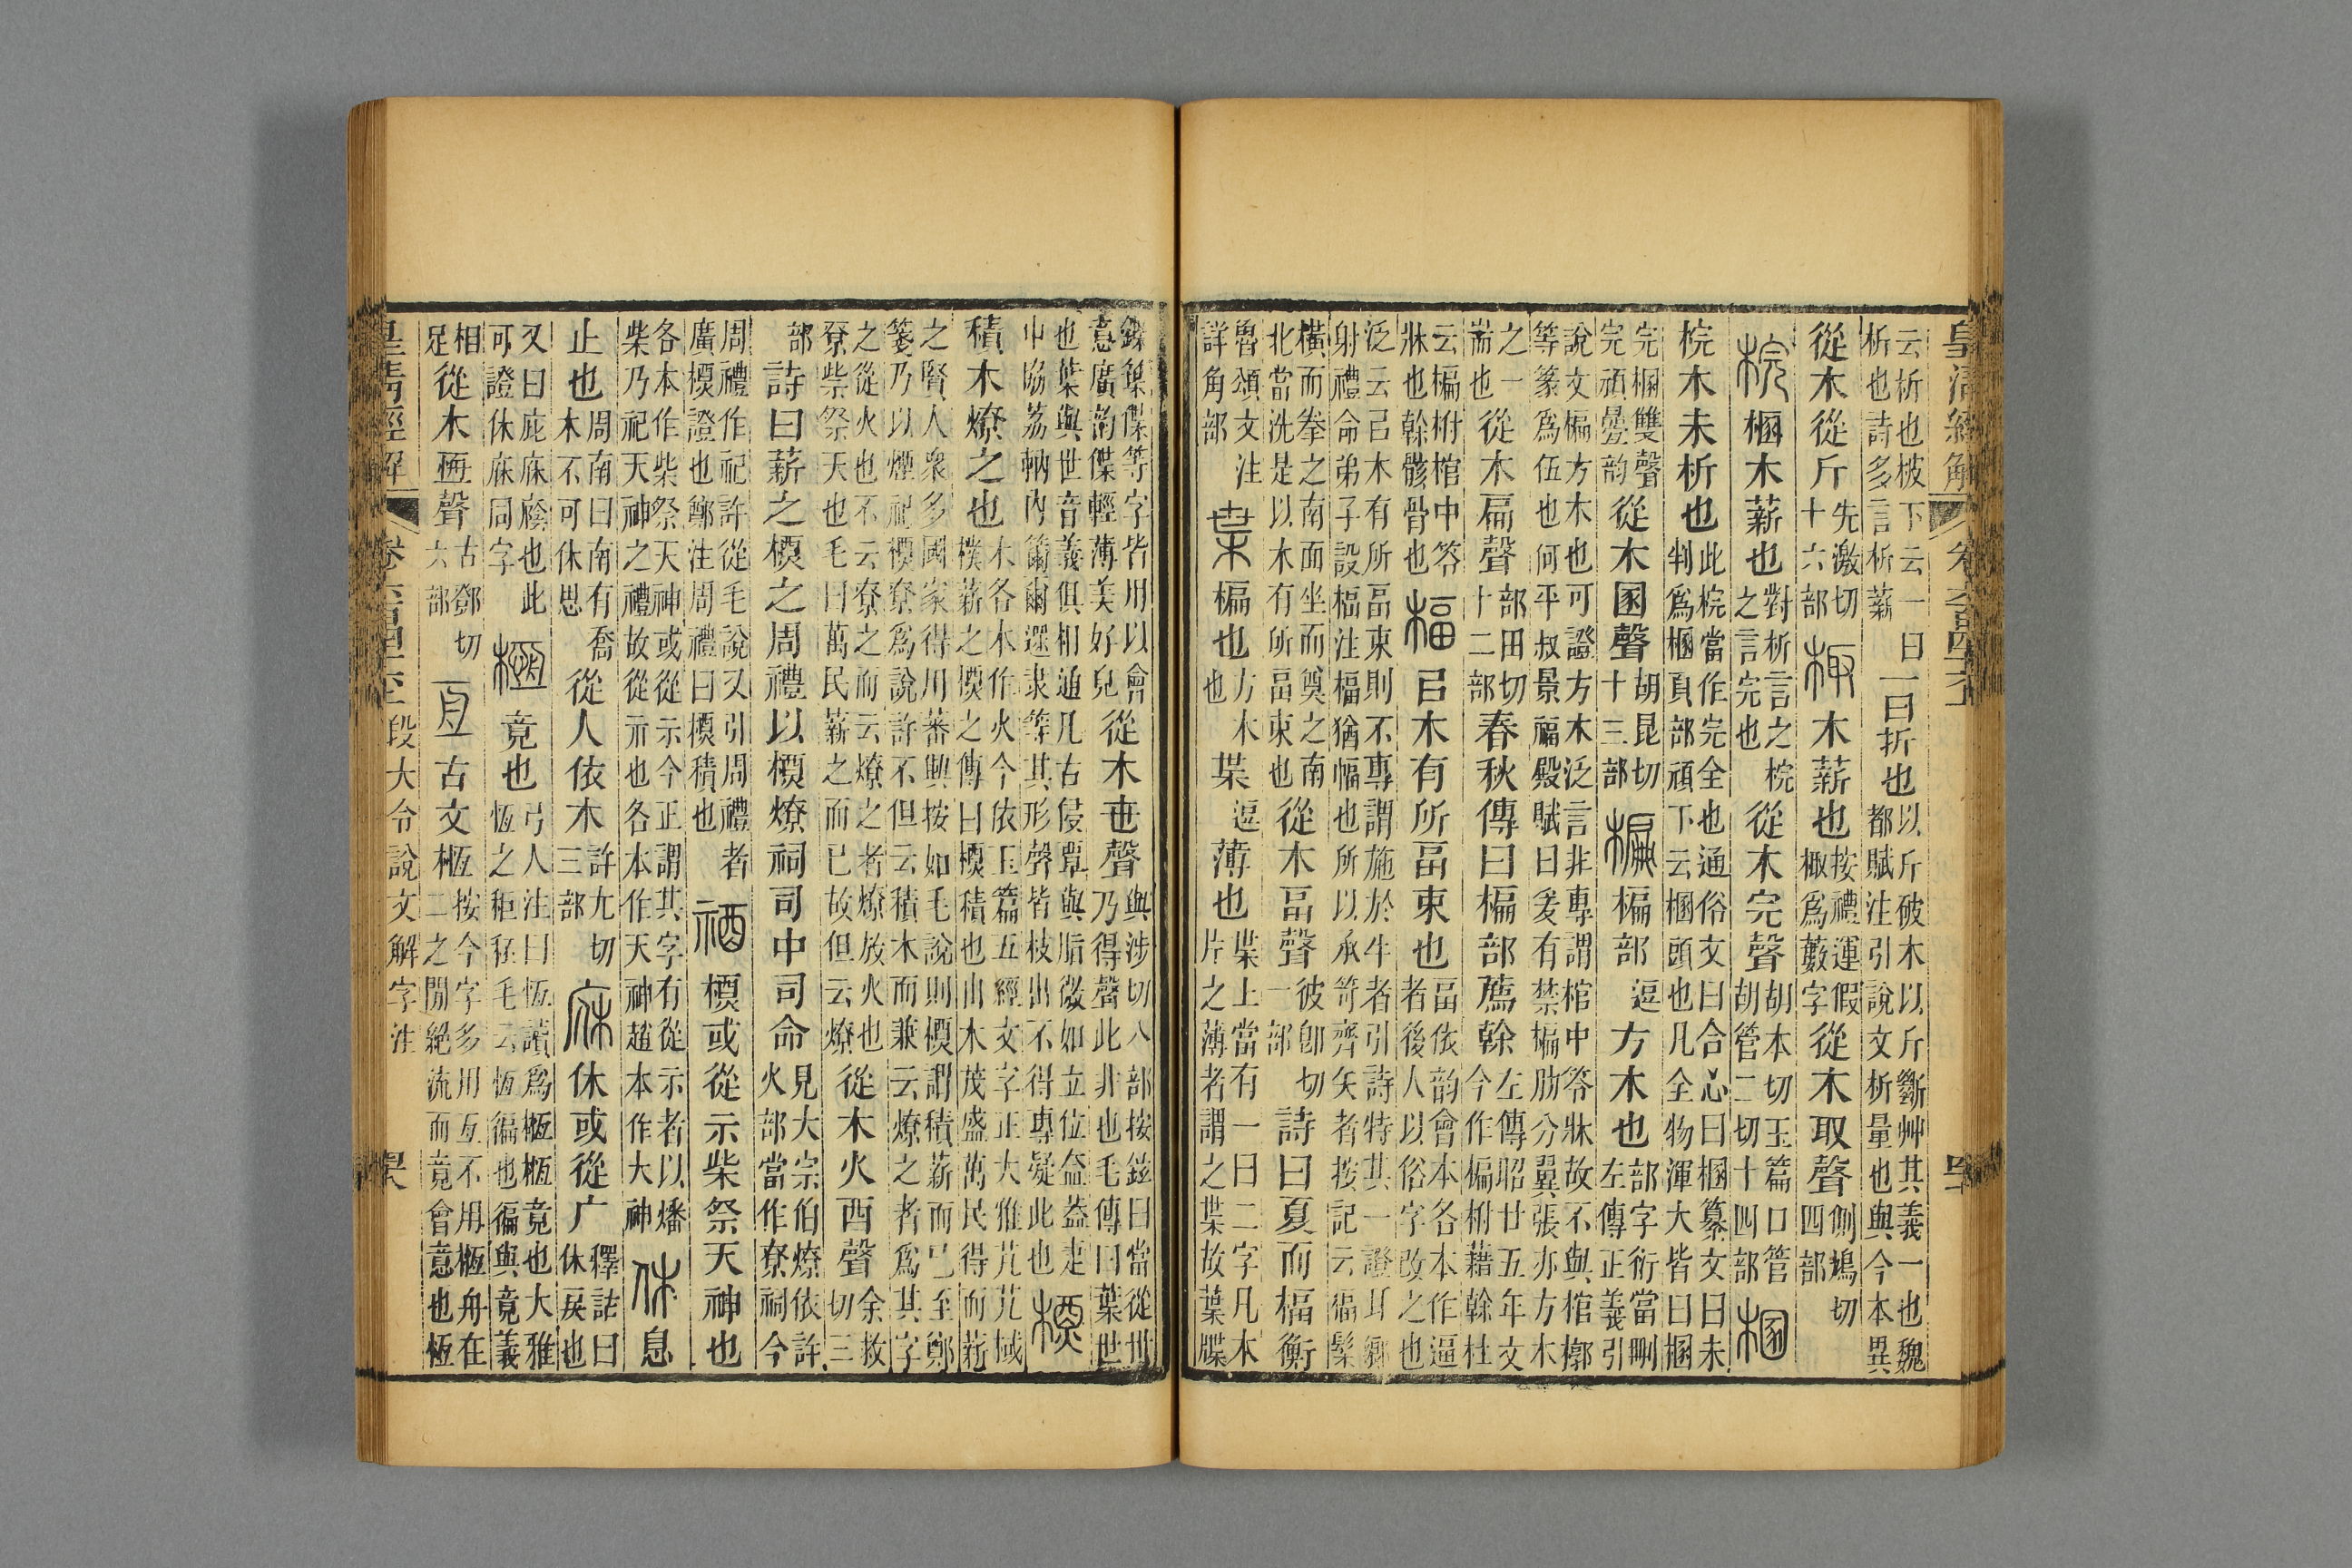 皇清經解 卷六百四十六
云析也柀下云一曰
析也詩多言析薪
一曰折也
以斤破木以斤斷艸其義一也魏
都賦注引說文析量也與今本異
從木從斤
先激切
十六部
棷 木薪也
按禮運假
棷爲藪字
從木取聲
側鳩切
四部
梡 棞木薪也
對析言之梡
之言完也
從木完聲
胡本切玉篇口管
胡管二切十四部
棞
梡木未析也
此梡當作完全也通俗文曰合心曰棞纂文曰未
判爲棞頁部頑下云棞頭也凡全物渾大皆曰棞
完棞雙聲
完頑㬪韵
從木圂聲
胡昆切
十三部
楄 楄部
逗
方木也
部字衍當刪
左傳正義引
說文楄方木也可證方木泛言非專謂棺中笭牀故不與棺槨
等篆爲伍也何平叔景福殿賦曰爰有禁楄肋分翼張亦方木
之一
耑也
從木扁聲
部田切
十二部
春秋傳曰楄部薦榦
左傳昭廿五年文
今作楄柎藉榦杜
云楄柎棺中笭
牀也榦骸骨也
楅 㠯木有所畐束也
畐依韵會本各本作逼
者後人以俗字改之也
泛云㠯木有所畐束則不專謂施於牛者引詩特其一證耳鄉
射禮命弟子設楅注楅猶幅也所以承笴齊矢者按記云楅髤
橫而拳之南面坐而奠之南
北當洗是以木有所畐束也
從木畐聲
彼卽切
一部
詩曰夏而楅衡
魯頌文注
詳角部
枼 楄也
方木
也
枼
逗
薄也
枼上當有一曰二字凡本
片之薄者謂之枼故葉牒
鍱䈎偞等字皆用以會
意廣韵偞輕薄美好皃
從木世聲
與涉切八部按鉉曰當從丗
乃得聲此非也毛傳曰葉世
也葉與世音義俱相通凡古侵覃與脂微如立位盍葢疌
中協荔軜內籋爾遝隶等其形聲皆枝出不得專疑此也
槱
積木燎之也
木各本作火今依玉篇五經文字正大雅芃芃棫
樸薪之槱之傳曰槱積也山木茂盛萬民得而薪
之賢人衆多國家得用蕃興按如毛說則槱謂積薪而已至鄭
箋乃以煙祀槱尞爲說許不但云積木而兼云燎之者爲其字
之從火也不云尞之而云燎之者燎放火也
尞柴祭天也毛曰萬民薪之而已故但云燎
從木火酉聲
余救
切三
部
詩曰薪之槱之周禮以槱燎祠司中司命
見大宗伯燎依許
火部當作尞祠今
周禮作祀許從毛說又引周禮者
廣槱證也鄭注周禮曰槱積也
禉 槱或從示柴祭天神也
各本作柴祭天神或從示今正謂其字有從示者以燔
柴乃祀天神之禮故從示也各本作天神趙本作大神
休 息
止也
周南曰南有喬
木不可休思
從人依木
許尤切
三部
庥 休或從广
釋詁曰
休戾也
又曰庇庥廕也此
可證休庥同字
㮓 竟也
弓人注曰恆讀爲㮓㮓竟也大雅
恆之秬秠毛云恆徧也徧與竟義
相
足
從木恆聲
古鄧切
六部
亙 古文㮓
按今字多用亙不用㮓舟在
二之閒絕流而竟會意也恆
皇清經解 卷六百四十六 段大令說文解字注